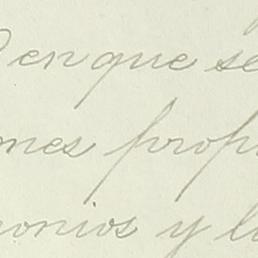 en que se
mes prop
onios y l